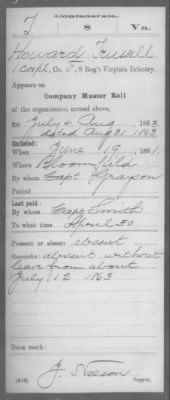 Confederate.
T 8 Va.
Howard Trussell
Corpl., Co. , 8 Reg't Virginia Infantry.
Appears on
Company Muster Roll
of the organization named above,
for July & Aug, 1863
dated Aug 31 1863
Enlisted:
When June 19, 1861.
Where
By whom Capt Grayson
Period
Last paid:
By whom Capt Smith
To what time April 30
Present or absent absent
Remarks: absent without
leave from about
July 12 1863
Book mark:
J.
(642) Copyist.